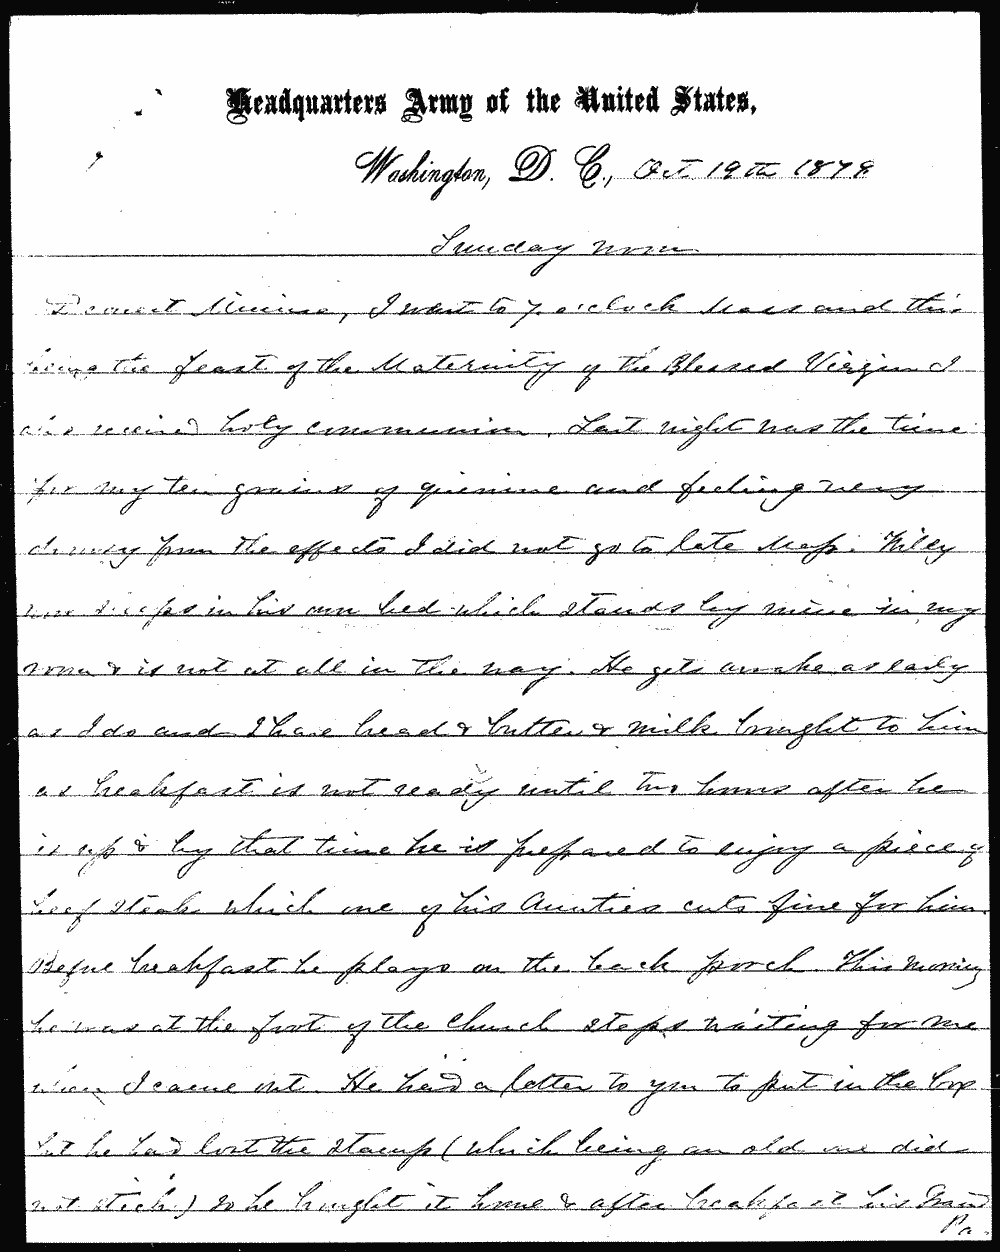 Headquarters Army of the United States,
Washington, D. C., Oct 19th 1879
Sunday noon
Dearest Minnie, I went to 7. o'clock Mass and this
being the feast of the Maternity of the Blessed Virgin I
also received holy communion. Last night was the time
for my ten grains of quinine and feeling very
drowsy from the effects I did not go to late Mass.
now sleeps in his own bed which stands by mine in my
room & is not at all in the way. He gets awake as early
as I do and I have bread & butter & milk brought to him
as breakfast is not ready until two hours after he
is up & by that time he is prepared to enjoy a piece of
beef steak which one of his Aunties cuts fine for him.
Before breakfast he plays on the back porch. This morning
he was at the foot of the Church steps waiting for me
when I came out. He had a letter to you to put in the box
but he had lost the stamp (which being an old one did
not stick) so he brought it home & after breakfast his Grand
Pa